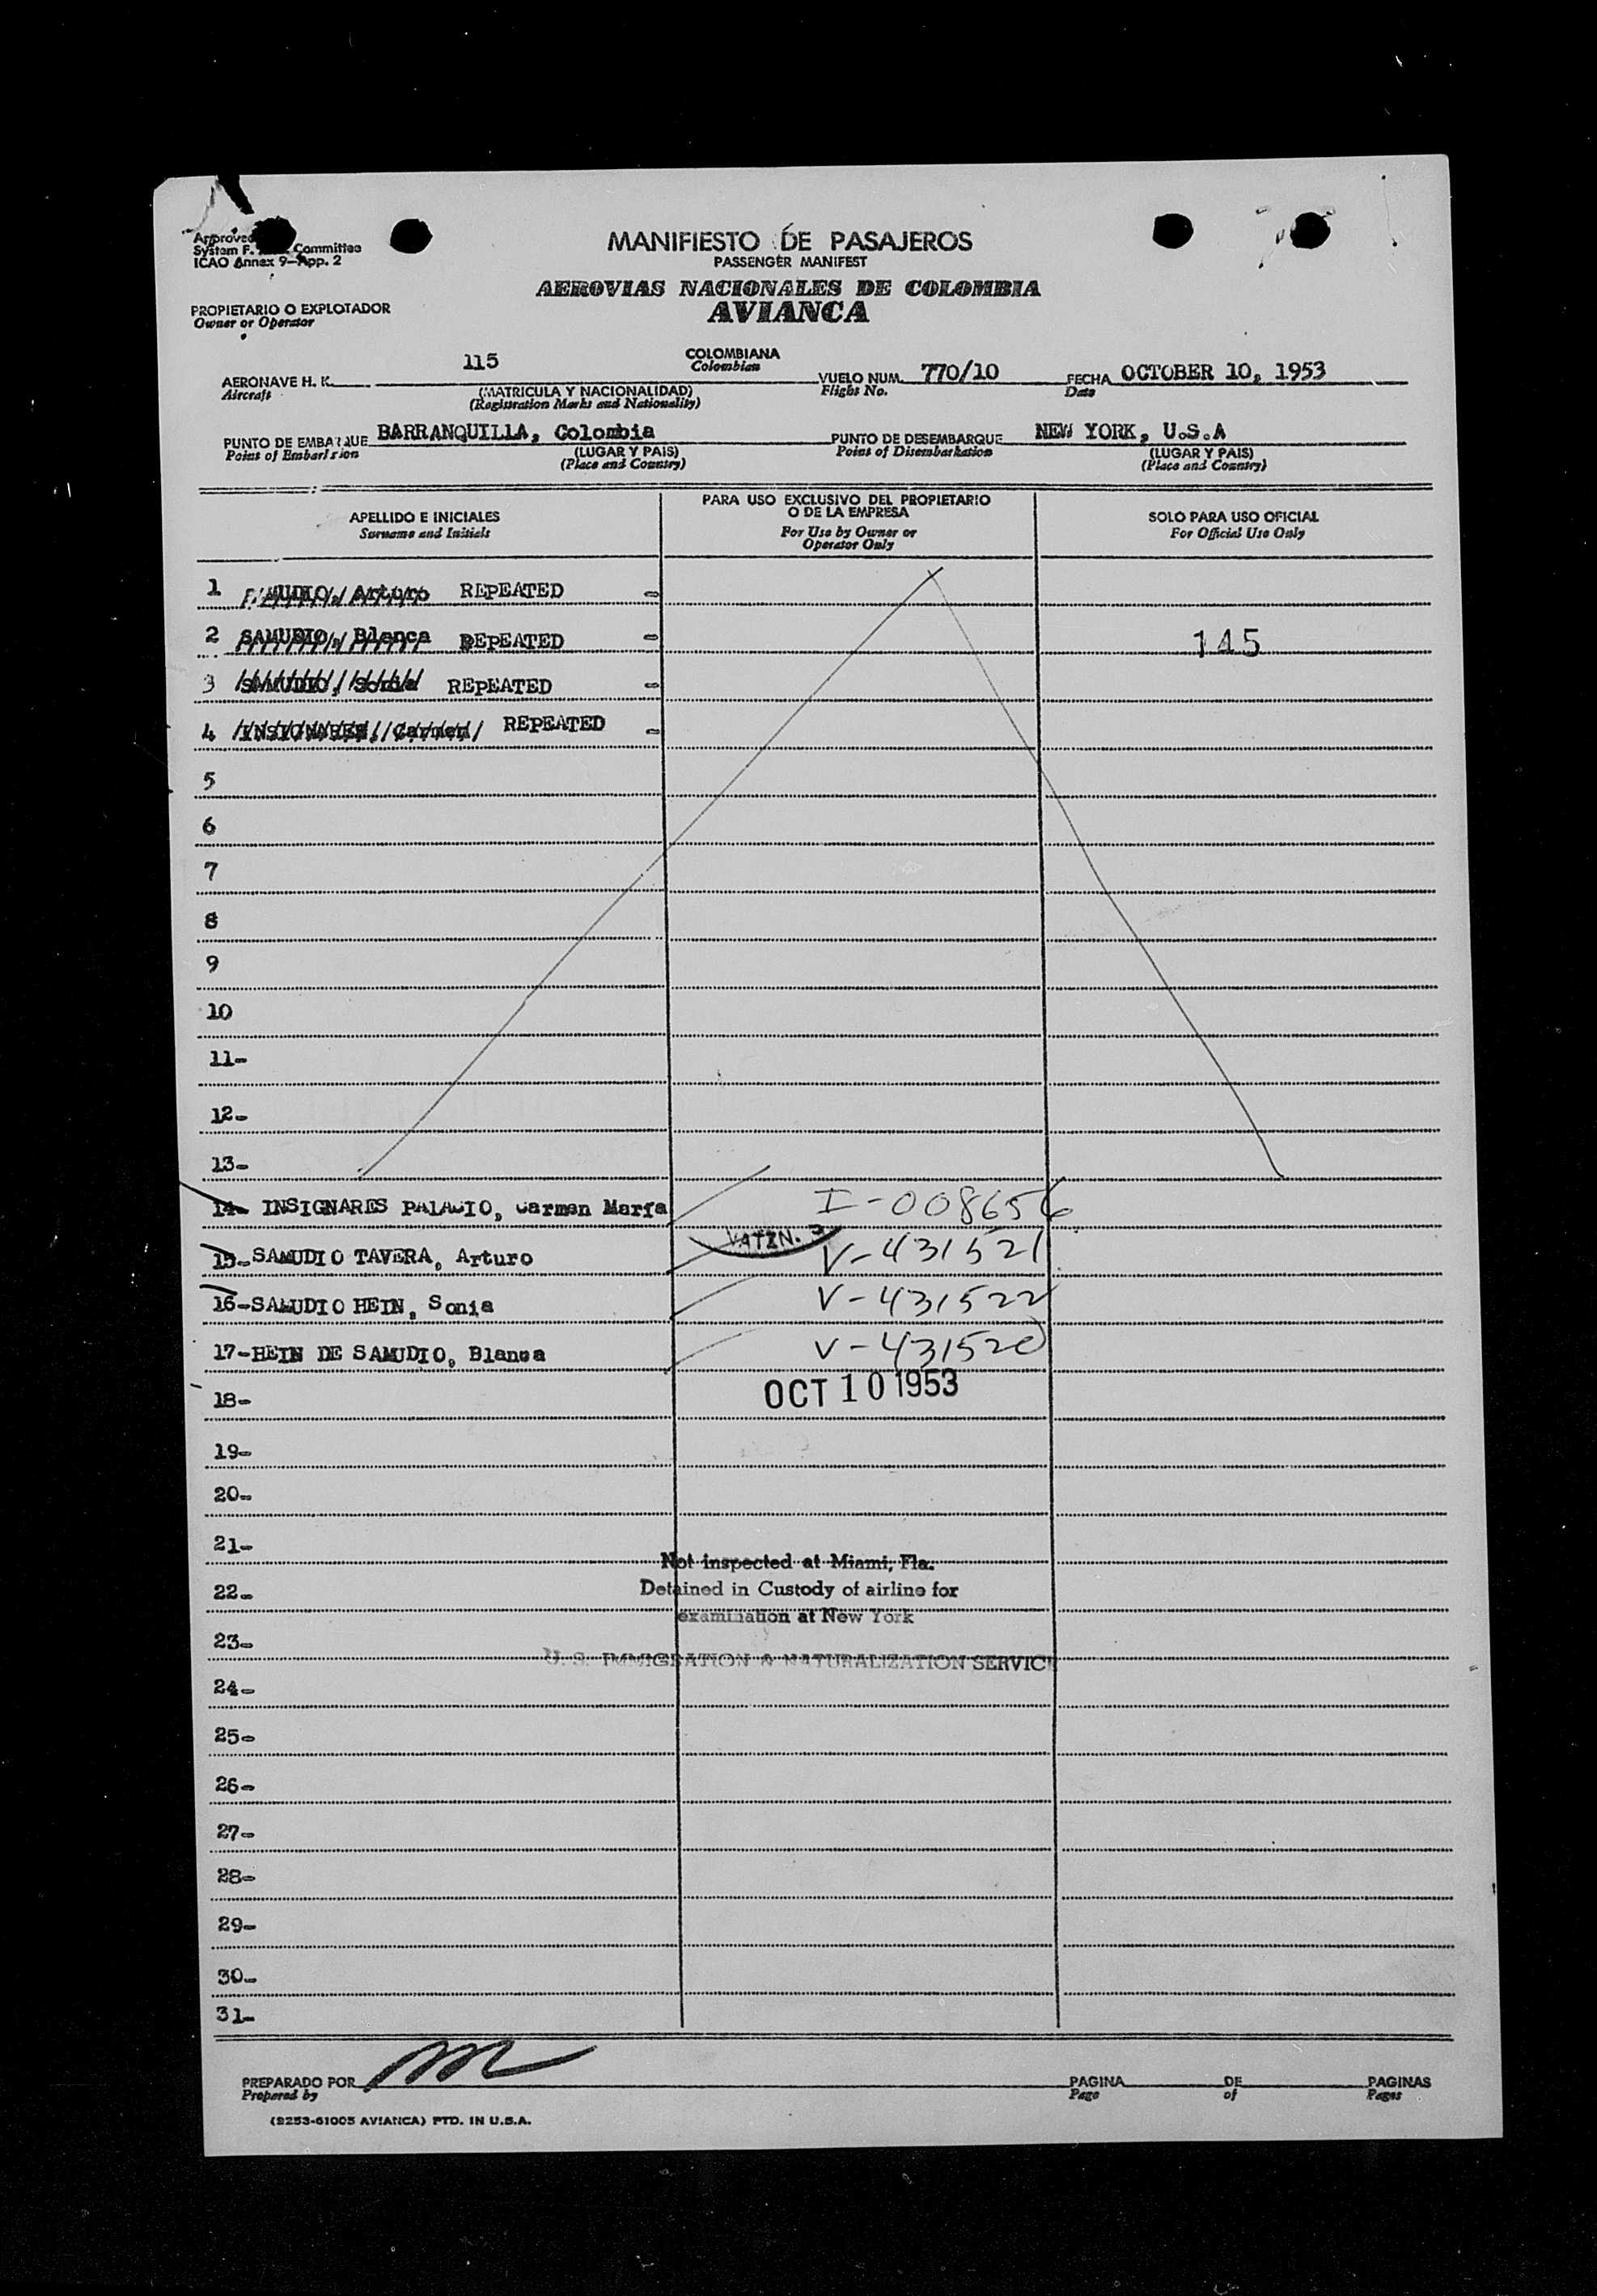 Approved
System F. Committee
ICAO Annex 9—App. 2
MANIFIESTO DE PASAJEROS
PASSENGER MANIFEST
AEROVIAS NACIONALES DE COLOMBIA
AVIANCA
PROPIETARIO O EXPLOTADOR
Owner or Operator
AERONAVE H. K. 115 COLOMBIANA VUELO NUM. 770/10 FECHA OCTOBER 10, 1953
Aircraft Colombian Flight No. Date
(MATRICULA Y NACIONALIDAD)
(Registration Marks and Nationality)
PUNTO DE EMBARQUE BARRANQUILLA, Colombia PUNTO DE DESEMBARQUE NEW YORK, U.S.A
Point of Embarkation (LUGAR Y PAIS) Point of Disembarkation (LUGAR Y PAIS)
(Place and Country) (Place and Country)
APELLIDO E INICIALES PARA USO EXCLUSIVO DEL PROPIETARIO O DE LA EMPRESA SOLO PARA USO OFICIAL
Surname and Initials For Use by Owner or Operator Only For Official Use Only
1 SAMUDIO, Arturo REPEATED -
2 SAMUDIO, Blanca REPEATED - 145
3 SAMUDIO, Sonia REPEATED -
4 INSIGNARES, Carmen REPEATED -
5
6
7
8
9
10
11-
12-
13-
14- INSIGNARES PALACIO, Carmen María I-008656
15-SAMUDIO TAVERA, Arturo V-431521
16-SAMUDIO HEIN, Sonia V-431522
17-HEIN DE SAMUDIO, Blanca V-431520
OCT 10 1953
18-
19-
20-
21-
Not inspected at Miami, Fla.
22- Detained in Custody of airline for
examination at New York
23-
U. S. IMMIGRATION & NATURALIZATION SERVICE
24-
25-
26-
27-
28-
29-
30-
31-
PREPARADO POR PAGINA DE PAGINAS
Prepared by Page of Pages
(S253-61005 AVIANCA) PTD. IN U.S.A.